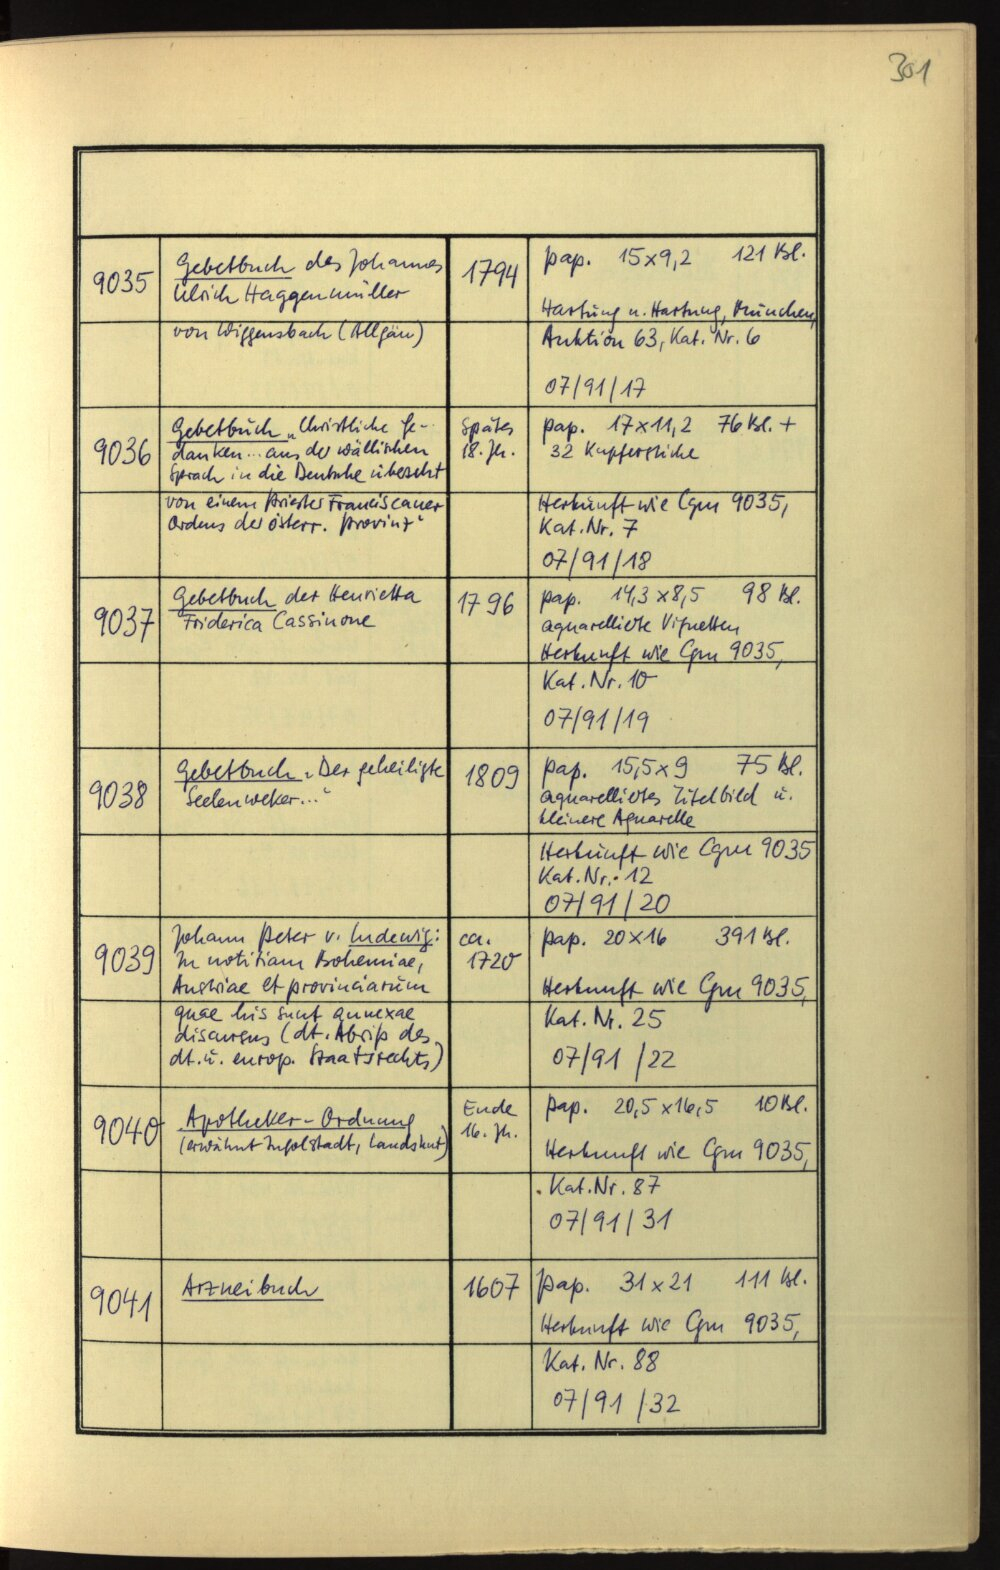 301
9035
Gebetbuch des Johannes
Ulrich Haggenmüller
von Wiggensbach (Allgäu)
1794
Pap. 15x9,2 121 Bl.
Hartung u. Hartung, München,
Auktion 63, Kat. Nr. 6
07/91/17
9036
Gebetbuch „Christliche Ge-
danken... aus der wällischen
Sprach in die Deutsche übersetzt
von einem Priester Franciscaner
Ordens der österr. Provinz“
spätes
18. Jh.
Pap. 17x11,2 76 Bl. +
32 Kupferstiche
Herkunft wie Cgm 9035,
Kat. Nr. 7
07/91/18
9037
Gebetbuch der Henrietta
Friderica Cassinone
1796
Pap. 14,3x8,5 98 Bl.
aquarellierte Vignetten
Herkunft wie Cgm 9035,
Kat. Nr. 10
07/91/19
9038
Gebetbuch „Der geheiligte
Seelenweker...“
1809
Pap. 15,5x9 75 Bl.
aquarelliertes Titelbild u.
kleinere Aquarelle
Herkunft wie Cgm 9035
Kat. Nr. 12
07/91/20
9039
Johann Peter v. Ludewig:
In notitiam Bohemiae,
Austriae et provinciarum
quae his sunt annexae
discursus (dt. Abriß des
dt. u. europ. Staatsrechts)
ca.
1720
Pap. 20x16 391 Bl.
Herkunft wie Cgm 9035,
Kat. Nr. 25
07/91/22
9040
Apotheker-Ordnung
(erwähnt Ingolstadt, Landshut)
Ende
16. Jh.
Pap. 20,5x16,5 10 Bl.
Herkunft wie Cgm 9035,
Kat. Nr. 87
07/91/31
9041
Arzneibuch
1607
Pap. 31x21 111 Bl.
Herkunft wie Cgm 9035,
Kat. Nr. 88
07/91/32